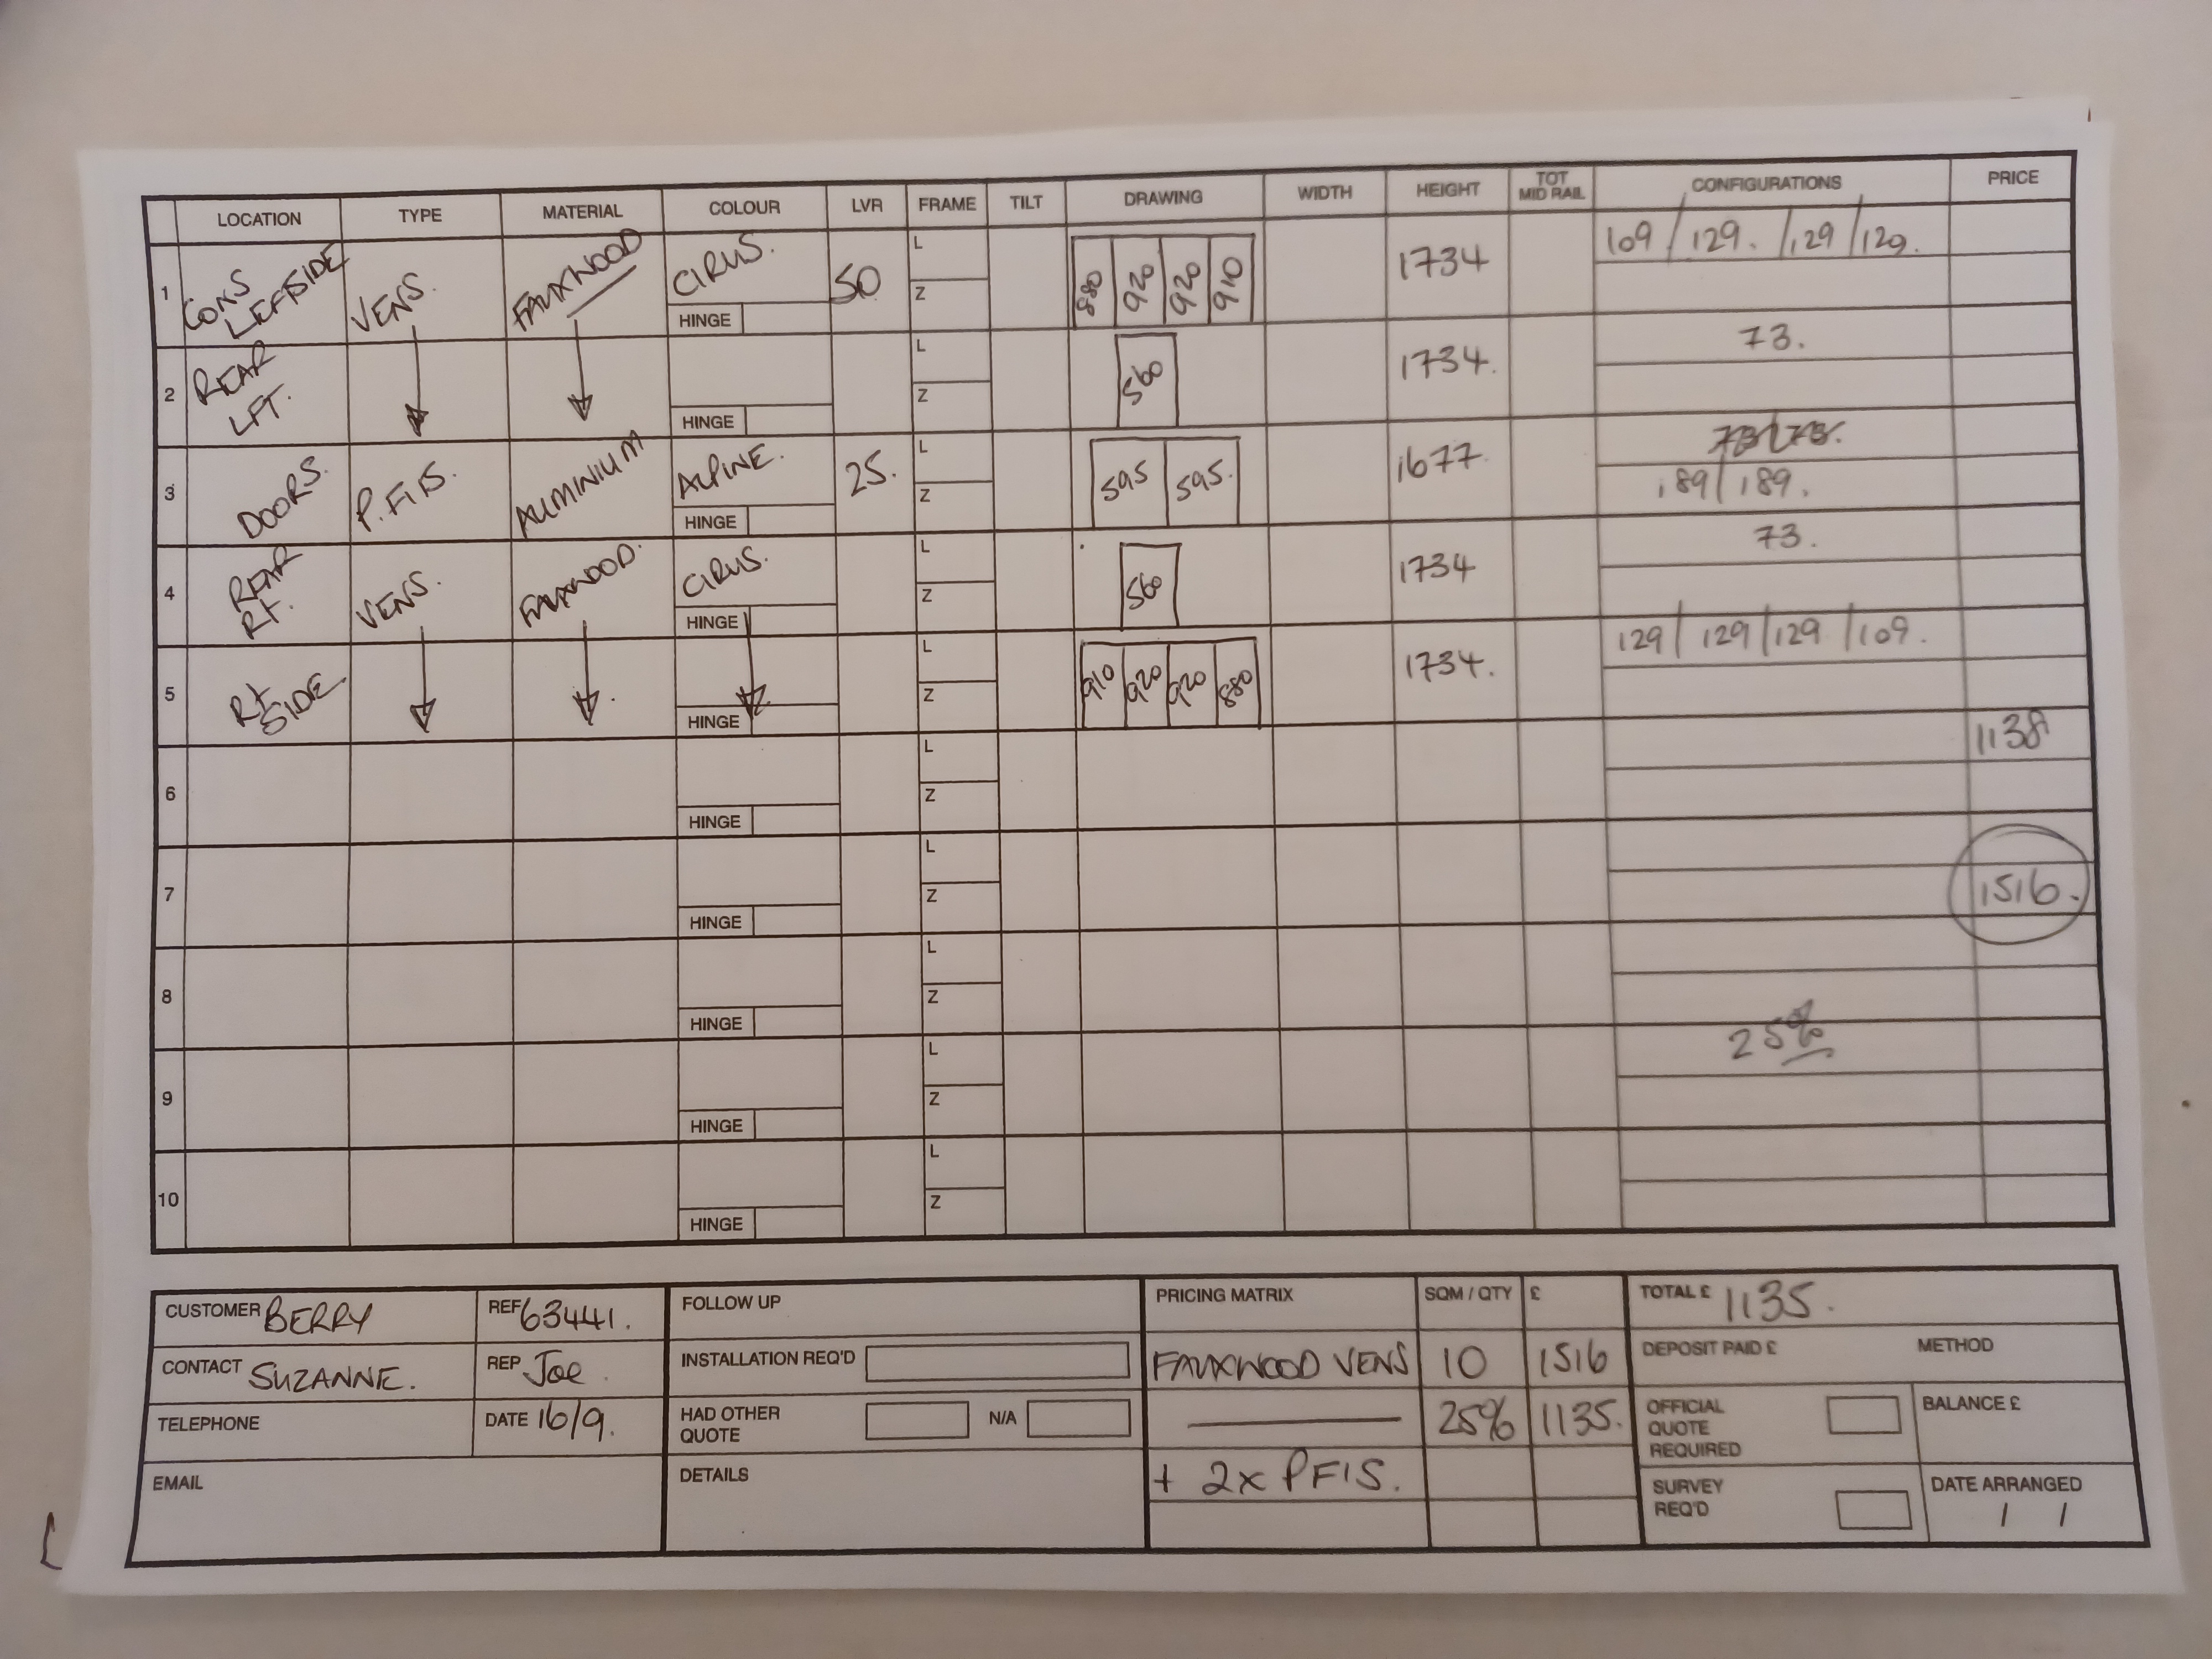 LOCATION TYPE MATERIAL COLOUR LVR FRAME TILT DRAWING WIDTH HEIGHT TOT MID RAIL CONFIGURATIONS PRICE
1 CONS LEFTSIDE VENS. FAUXWOOD CIRUS. HINGE 50 L Z 880 920 920 910 1734 109 / 129. / 129 / 129.
2 REAR LFT. HINGE L Z 560 1734. 73.
3 DOORS. P.FIS. ALUMINIUM ALPINE. HINGE 25. L Z 595 595. 1677. 73/73. 189/189.
4 REAR RT. VENS. FAUXWOOD. CIRUS. HINGE L Z 560 1734 73.
5 RT SIDE HINGE L Z 910 920 920 880 1734. 129 / 129 / 129 / 109.
6 HINGE L Z 1138
7 HINGE L Z 1516.
8 HINGE L Z
9 HINGE L Z 25%
10 HINGE L Z
CUSTOMER BERRY REF 63441. FOLLOW UP PRICING MATRIX SQM / QTY £ TOTAL £ 1135.
CONTACT SUZANNE. REP Joe. INSTALLATION REQ'D FAUXWOOD VENS 10 1516 DEPOSIT PAID £ METHOD
TELEPHONE DATE 16/9. HAD OTHER QUOTE N/A 25% 1135. OFFICIAL QUOTE REQUIRED BALANCE £
EMAIL DETAILS + 2x PFIS. SURVEY REQ'D DATE ARRANGED / /